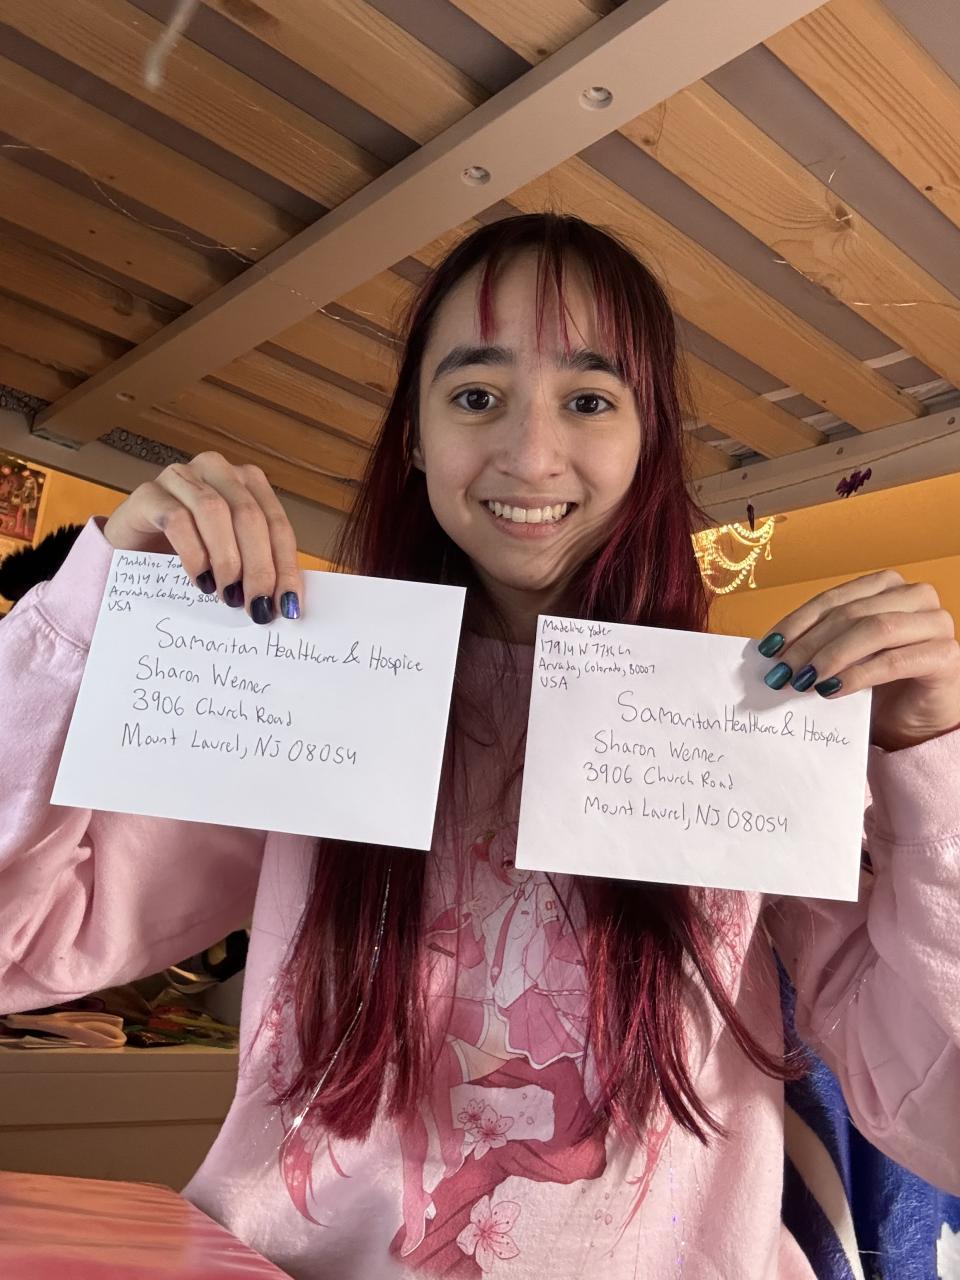 Madeline
17914 W 77th
Arvada, Colorado, 8000
USA
Samaritan Healthcare & Hospice
Sharon Wenner
3906 Church Road
Mount Laurel, NJ 08054
Madeline Yoder
17914 W 77th Ln
Arvada, Colorado, 80007
USA
Samaritan Healthcare & Hospice
Sharon Wenner
3906 Church Road
Mount Laurel, NJ 08054